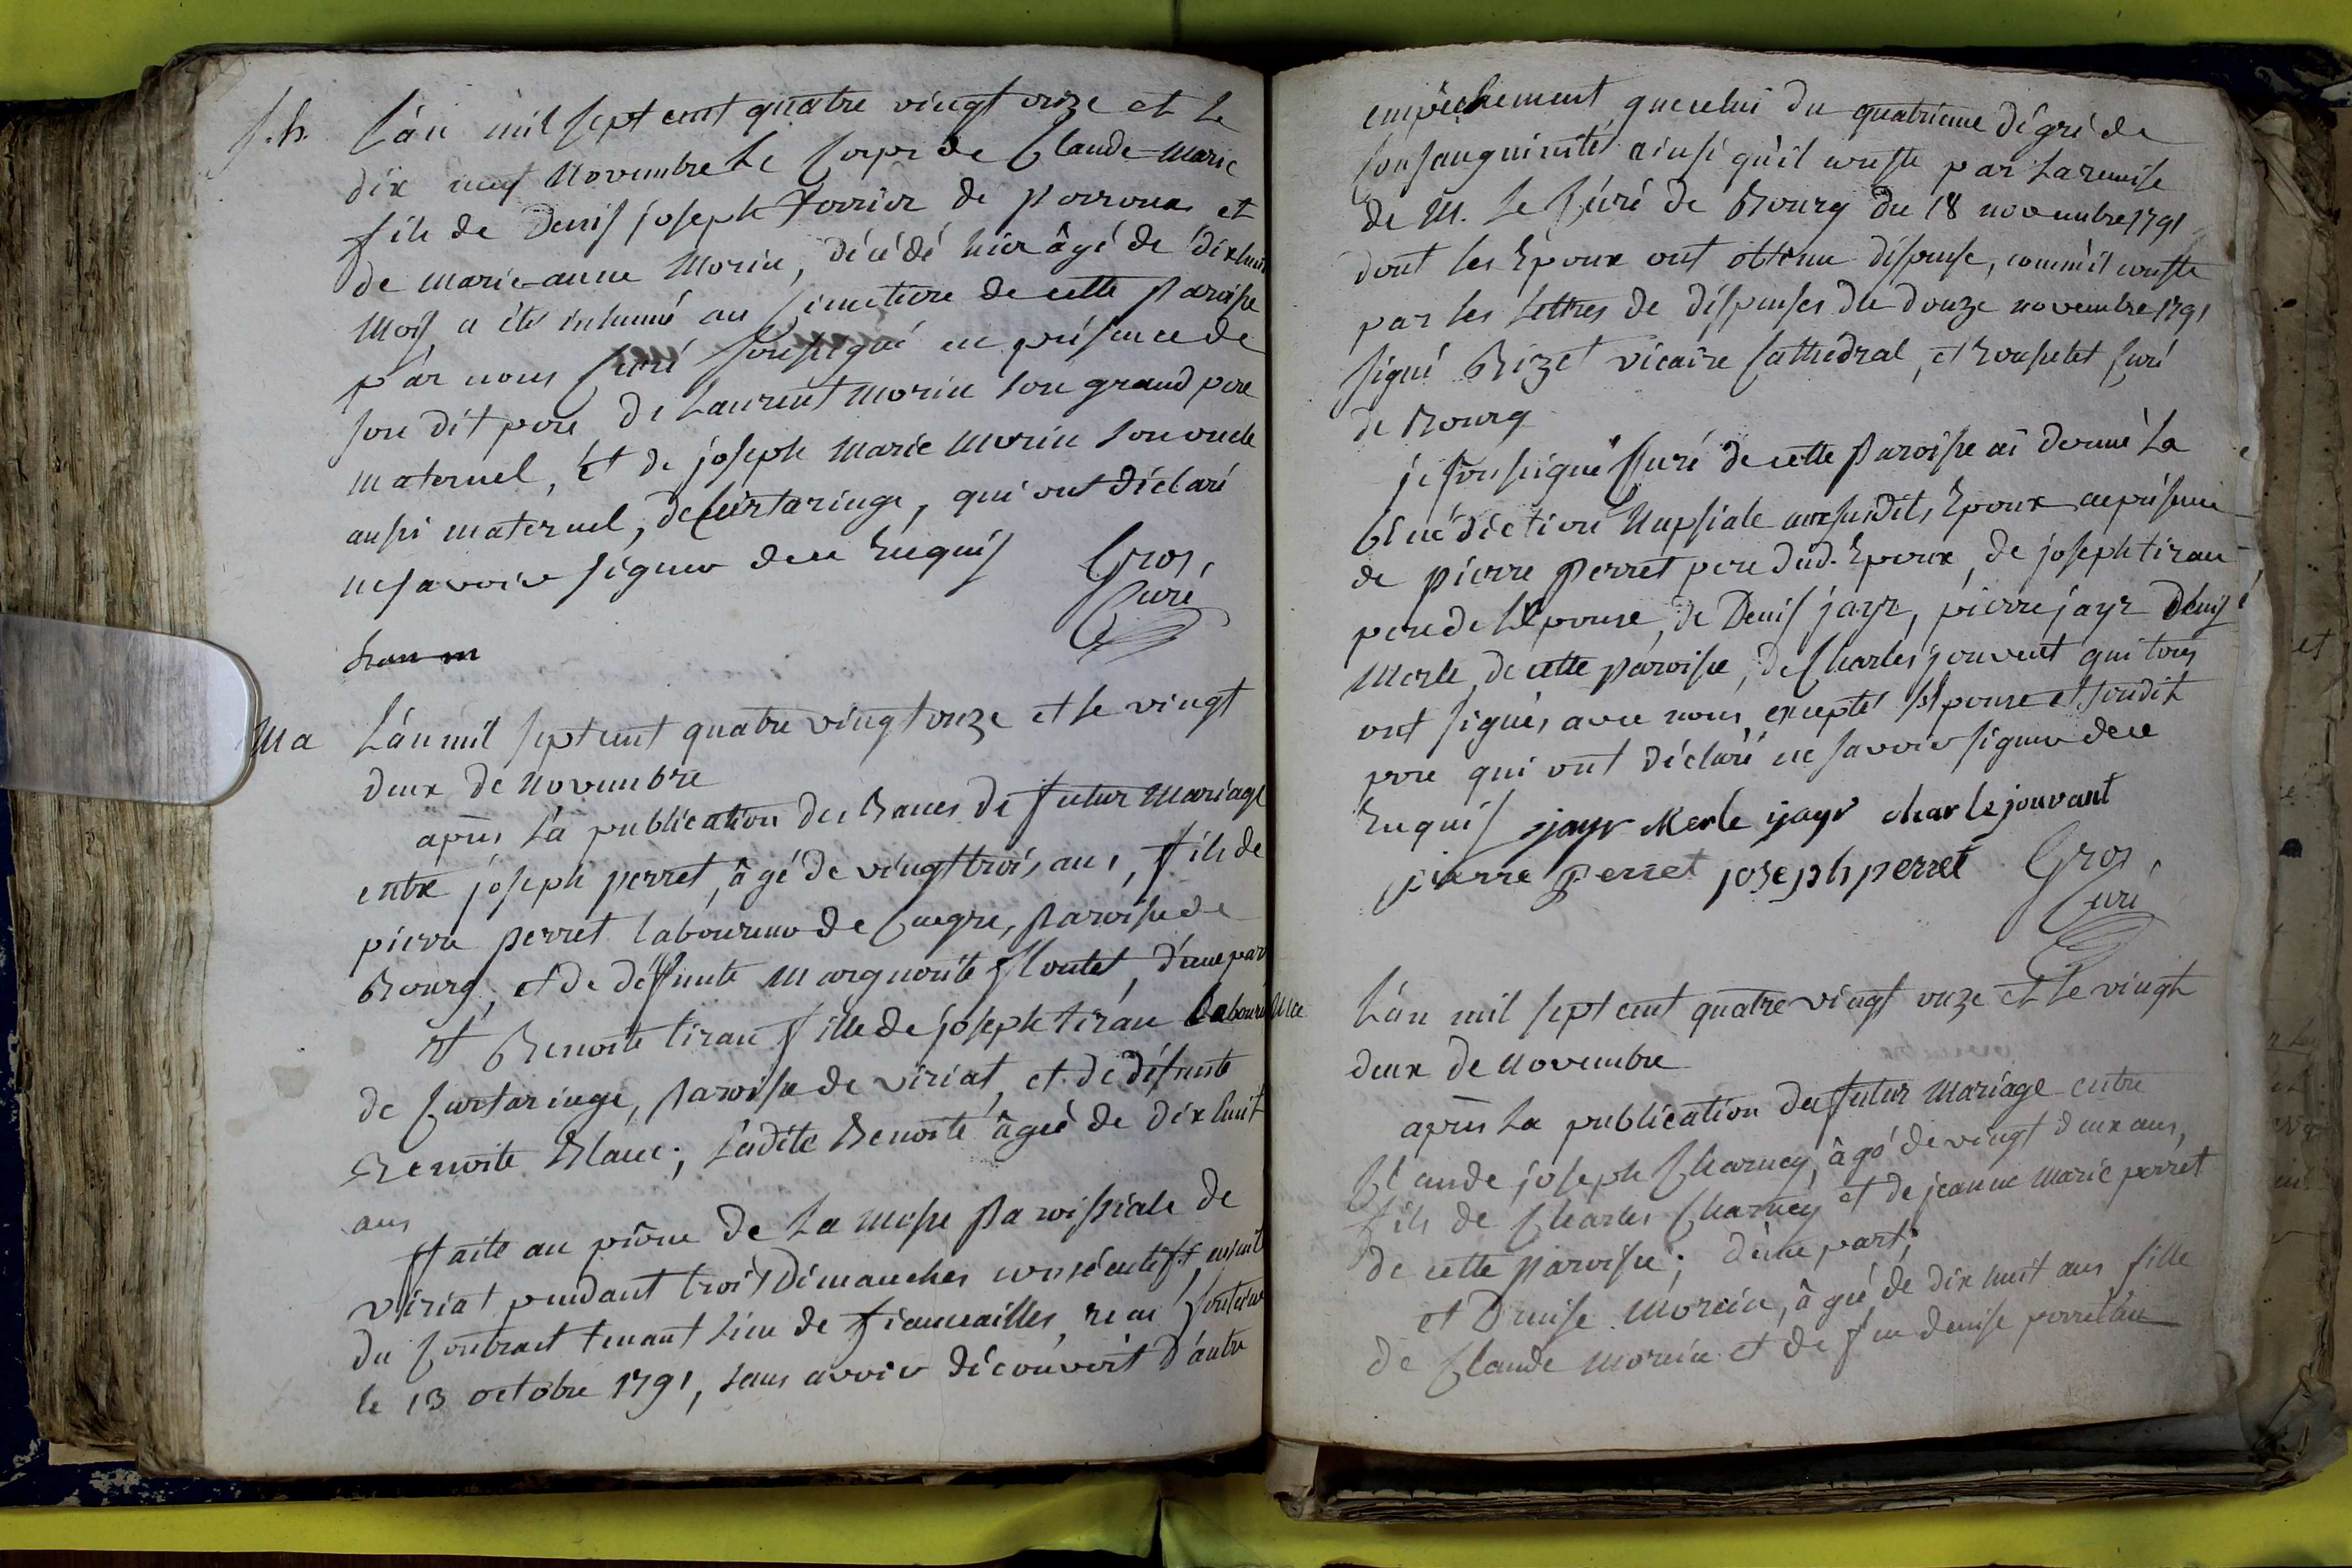 S.h. L'an mil sept cent quatre vingt onze et le
dix neuf Novembre Le Corps de Claude-Marie
fils de Denis joseph ferrier de Perroux et
de marie-anne Morin, décédé hier âgé de dix huit
Mois a été inhumé au Cimetiere de cette Paroisse
par nous Curé soussigné en présence de
son dit pere de Laurent Morin son grand pere
maternel, et de joseph Marie Morin son oncle
aussi maternel, de Curtaringe, qui ont déclaré
ne savoir signer de ce Enquis Gros,
Curé
Ma L'an mil sept cent quatre vingt onze et le vingt
deux de Novembre
après la publication des Bancs de futur Mariage
entre joseph perret, âgé de vingt trois ans, fils de
pierre perret laboureur de Cuegre, Paroisse de
Bourg, et de déffunte Marguerite Floutet, d'une par
et Benoite tiran fille de joseph tiran labour
de Curtaringe, Paroisse de viriat, et de défunte
Benoite Blanc; ladite Benoite âgée de dix huit
ans
ffaite au prône de La Messe Paroissiale de
viriat pendant trois Dimanches consécutifs, ensuite
du Contract tenant Lieu de fiancailles, reçu
le 13 octobre 1791, sans avoir découvert d'autre
empêchement que celui du quatrieme dégré de
Consanguinité ainsi qu'il conste par La remise
de M. Le Curé de Bourg du 18 novembre 1791
dont les Epoux ont obtenu dispense, comm'il conste
par les Lettres de dispenses du douze novembre 1791
signé Rizet vicaire Cathédral, et Rousselet Curé
de Bourg
je soussigné Curé de cette Paroisse ai donné La
Bénédiction Nupsiale auxsusdits Epoux en présence
de pierre Perret pere dud. Epoux, de joseph tiran
pere de l'Epouse, de Denis jayr, pierre jayr Denis
Merle, de cette Paroisse, de Charles jouvent qui tous
ont signés avec nous, excepté l'Epouse et sondit
pere qui ont déclaré ne savoir signer de ce
Enquis jayr Merle jayr charle jouvant
pierre Perret joseph perret Gros,
Curé
L'an mil sept cent quatre vingt onze et le vingt
deux de Novembre
après La publication du futur Mariage entre
Claude joseph Charney, âgé de vingt deux ans,
fils de Charles Charney et de jeanne Marie perret
de cette Paroisse; d'une part;
et Denise Morein, âgée de dix huit ans fille
de Claude Morein et de feu denise